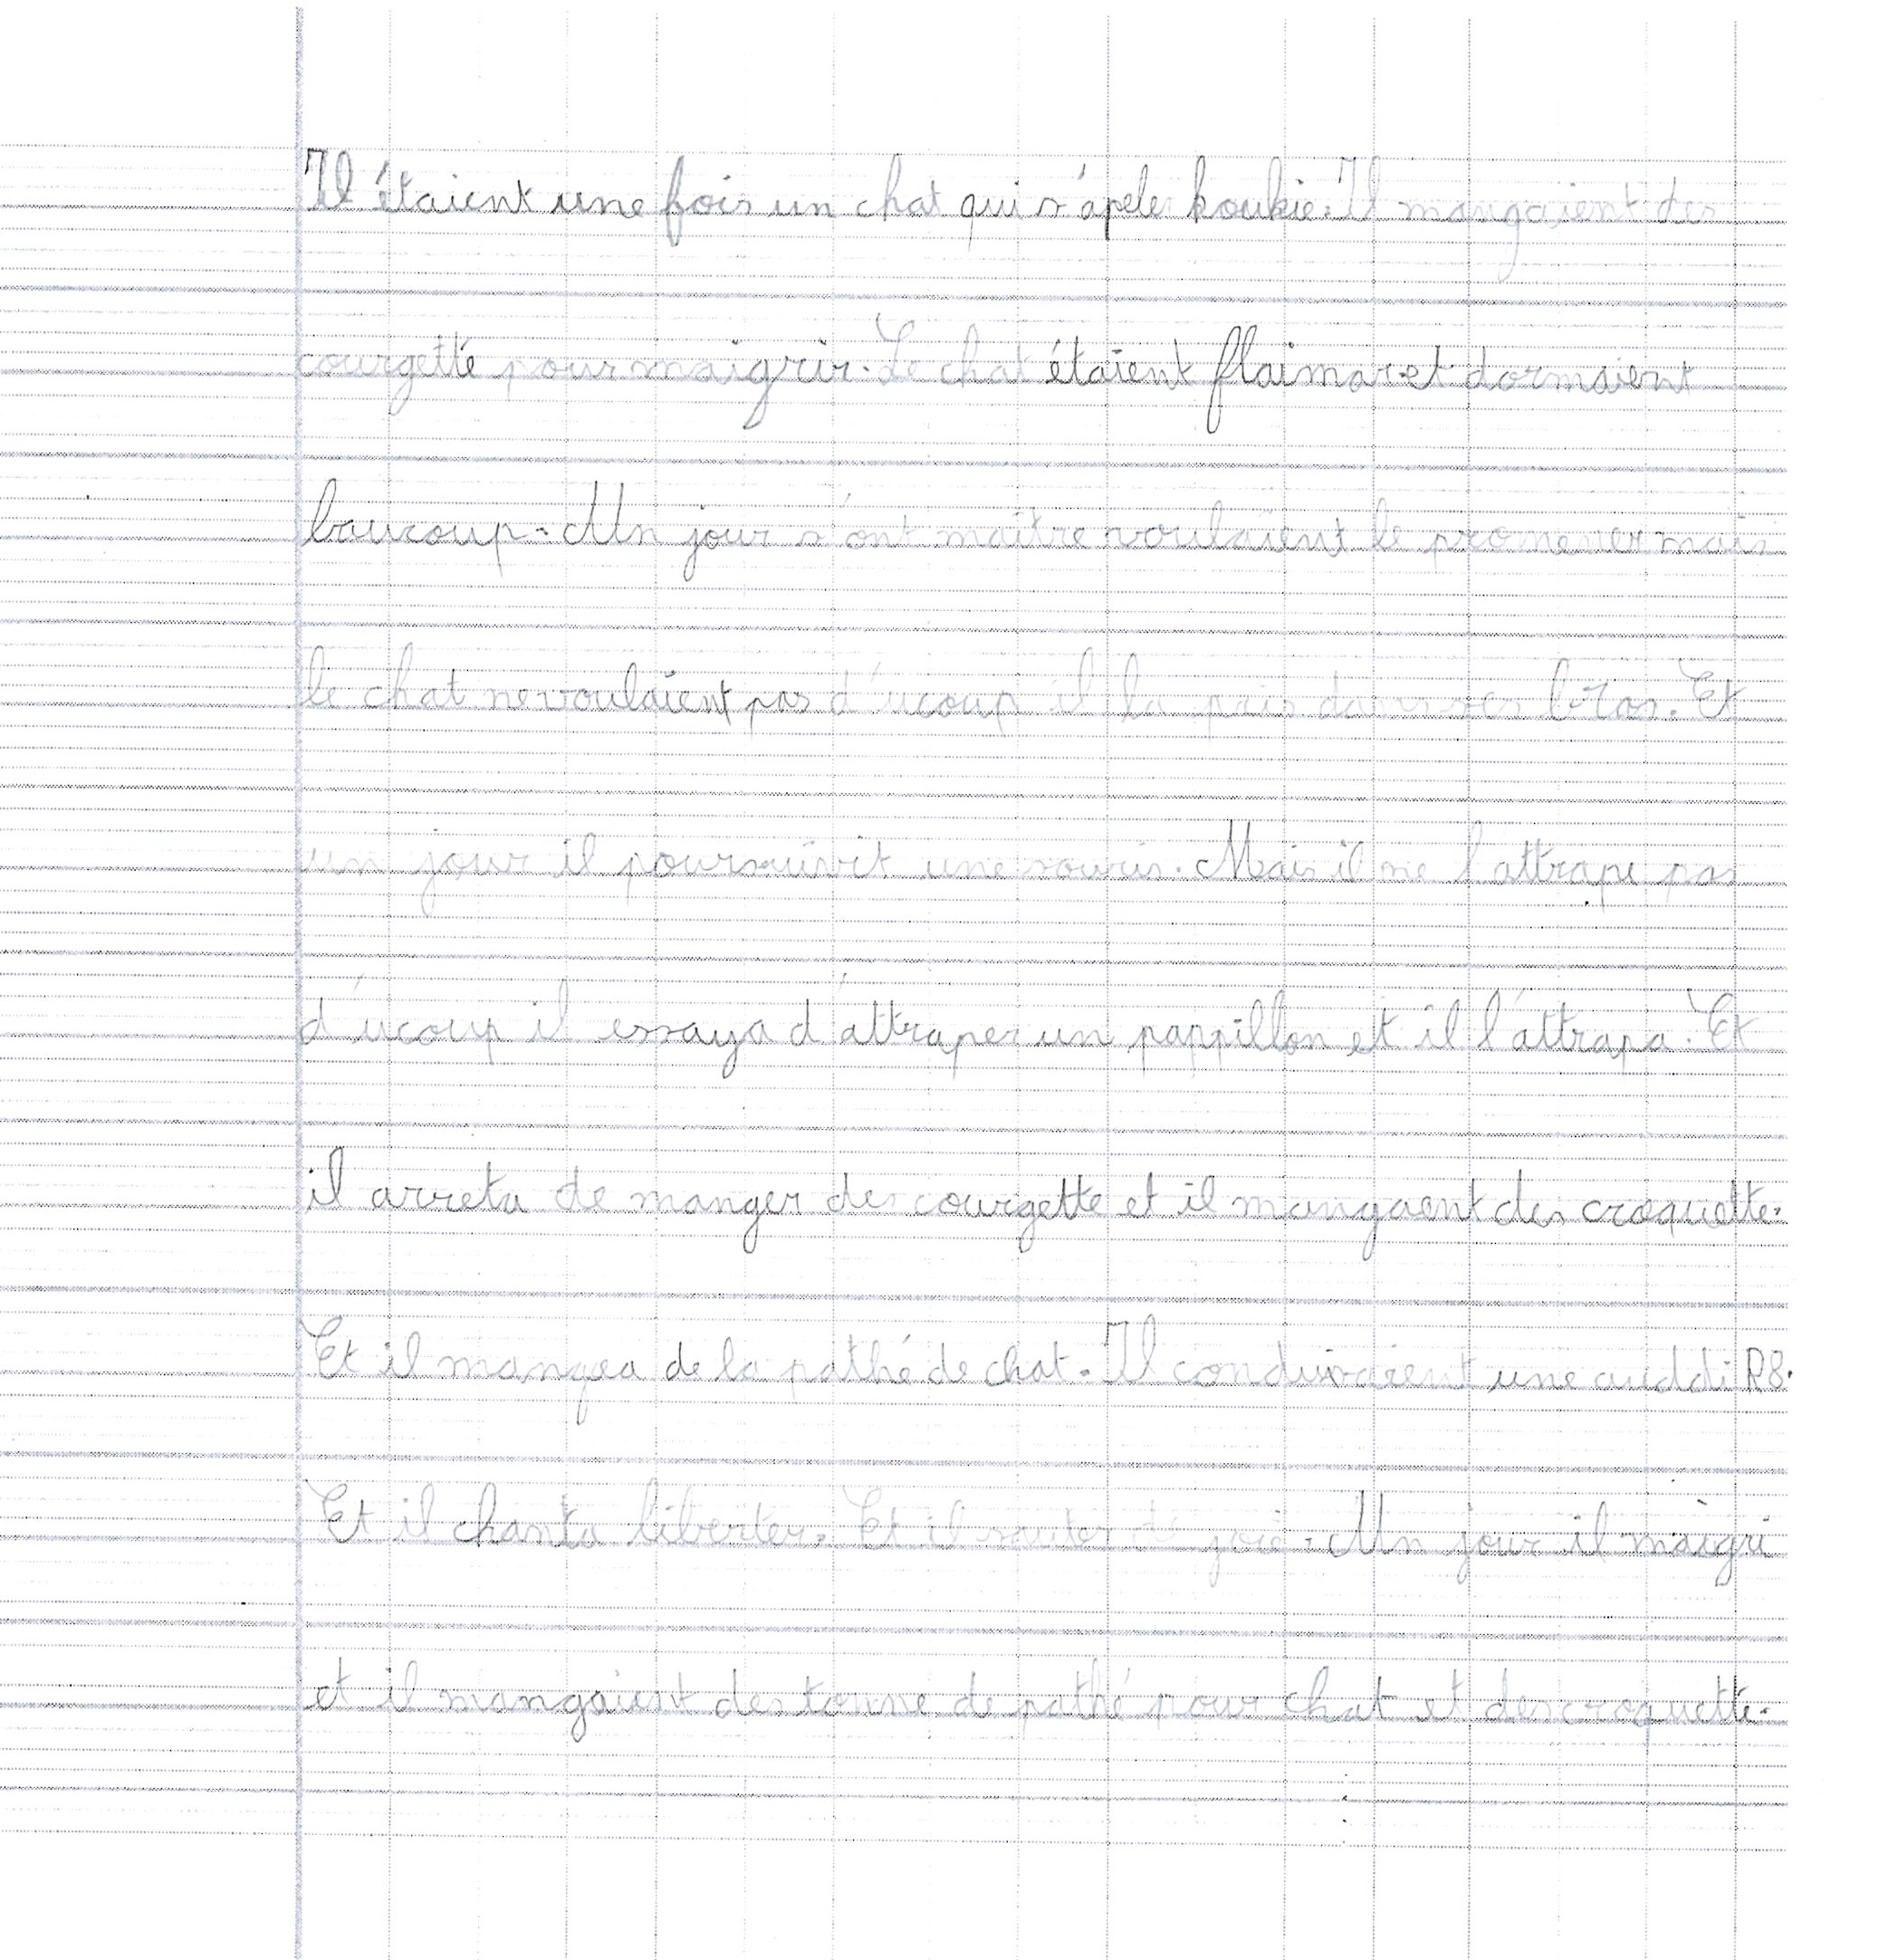 Il étaient une fois un chat qui s'apele koukie. Il mangaient des
courgette pour maigrir. Le chat étaient flaimar et dormaient
baucoup. Un jour s'ont maitre voulaient le promener mais
le chat ne voulaient pas d'ucoup il la pris dans ses bras. Et
un jour il poursuivit une souris. Mais il ne l'attrape pas
d'ucoup il essaya d'attraper un pappillon et il l'attrapa. Et
il arreta de manger des courgette et il mangaent des croquette.
Et il mangea de la pathé de chat. Il conduisaient une auddi R8.
Et il chanta liberter. Et il sauter de joie. Un jour il maigri
et il mangaient des tonne de pathé pour chat et des croquette.